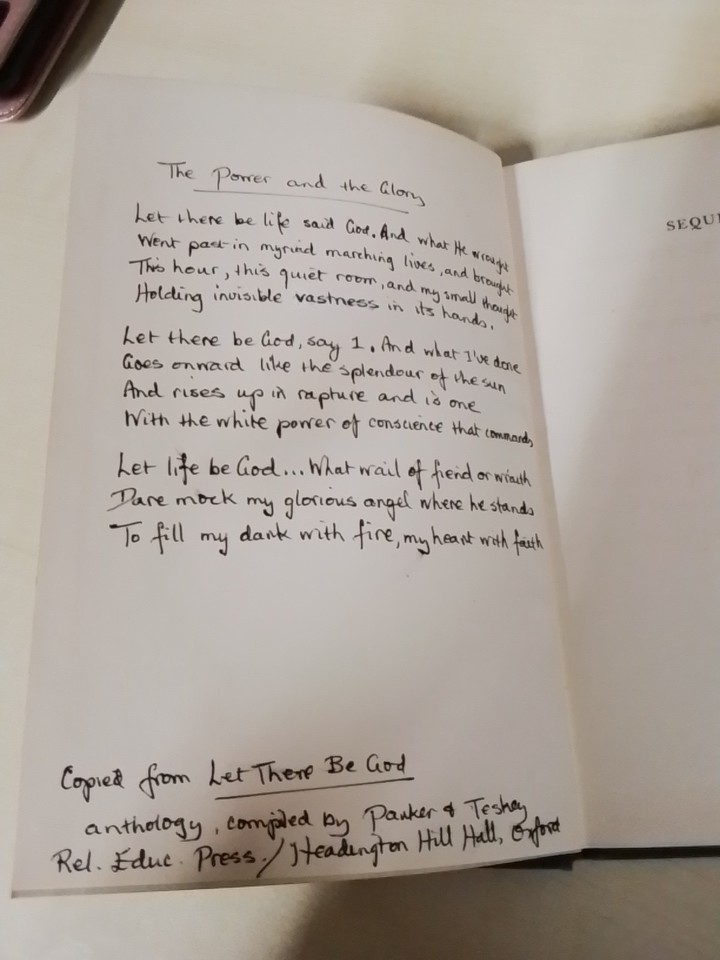 The Power and the Glory
Let there be life said God. And what He wrought
Went past in myriad marching lives, and brought
This hour, this quiet room, and my small thought
Holding invisible vastness in its hands.
Let there be God, say I. And what I've done
Goes onward like the splendour of the sun
And rises up in rapture and is one
With the white power of conscience that commands
Let life be God... What wail of fiend or wraith
Dare mock my glorious angel where he stands
To fill my dark with fire, my heart with faith
Copied from Let There Be God
anthology, compiled by Parker & Teskey
Rel. Educ. Press. / Headington Hill Hall, Oxford
SEQU